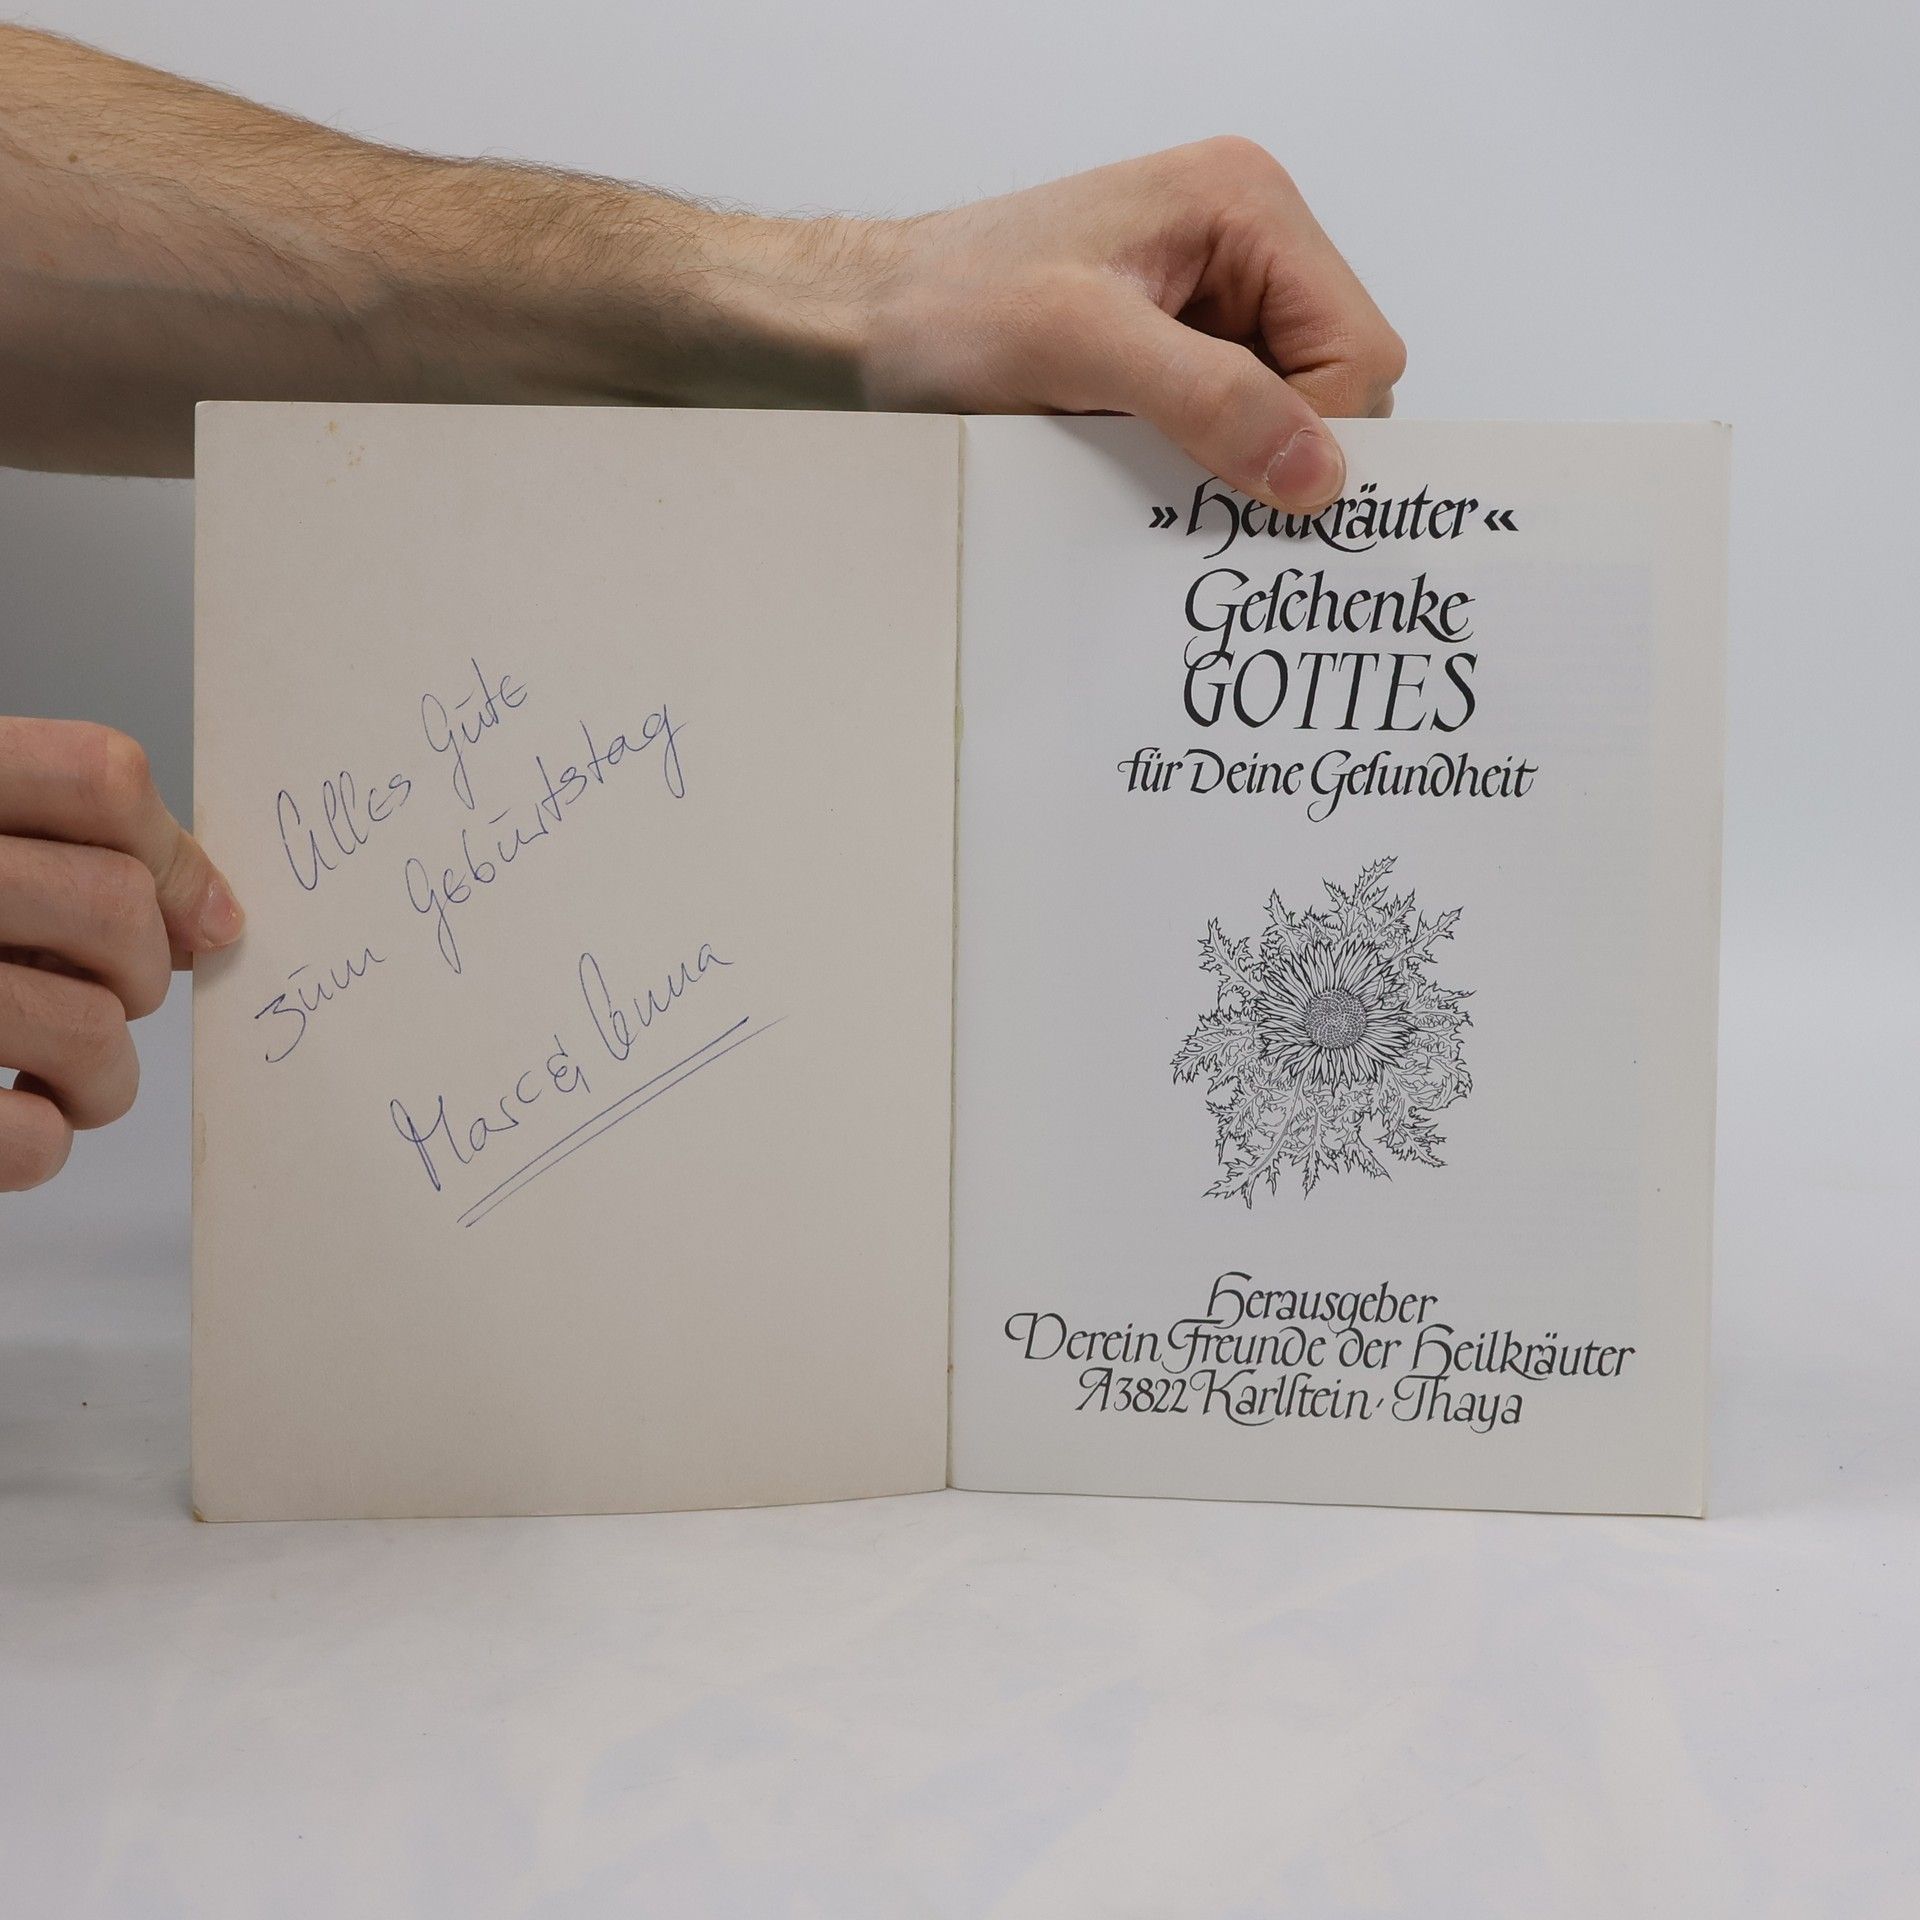 Alles Gute
zum Geburtstag
Marc & Anna
»Heilkräuter«
Geſchenke
GOTTES
für Deine Geſundheit
Herausgeber
Verein Freunde der Heilkräuter
A3822 Karlſtein, Thaya